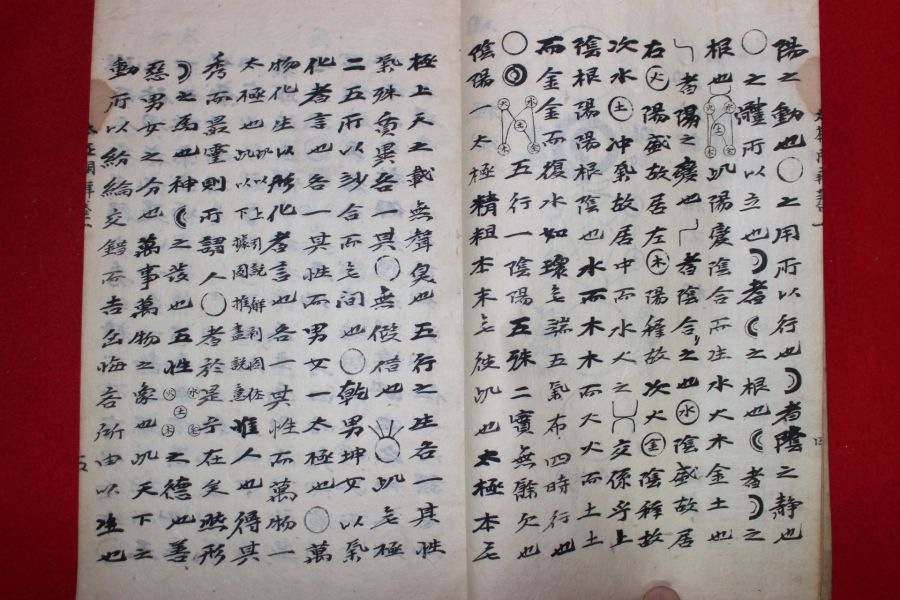 陽之動也○之用所以行也☽者陰之靜也
○之體所以立也☽者☾之根也☾者☽之
根也 水火木金土 此陽變陰合而生水火木金土也
者陽之變也 者陰合之也 水 陰盛故居
右 火 陽盛故居左 木 陽稚故次火 金 陰稚故
次水 土 冲氣故居中而水火之 交係乎上
陰根陽陽根陰也水而木木而火火而土土
而金金而復水如環無端五氣布四時行也
○ ◎ 火水土木金 五行一陰陽五殊二實無餘欠也
陰陽一太極精粗本末無彼此也太極本無
極上天之載無聲臭也五行之生各一其性
氣殊質異各一其○無假借也 此無極
二五所以妙合而無間也○乾男坤女以氣
化者言也各一其性而男女一太極也○萬
物化生以形化者言也各一其性而萬物一
太極也此以上引說解剝圖體此以下據圖推盡說意惟人也得其
秀而最靈則所謂人○者於是乎在矣然形
☽之爲也神☾之發也五性 火水土木金 之德也善
惡男女之分也萬事萬物之象也此天下之
動所以紛綸交錯而吉凶悔吝所由以生也
五